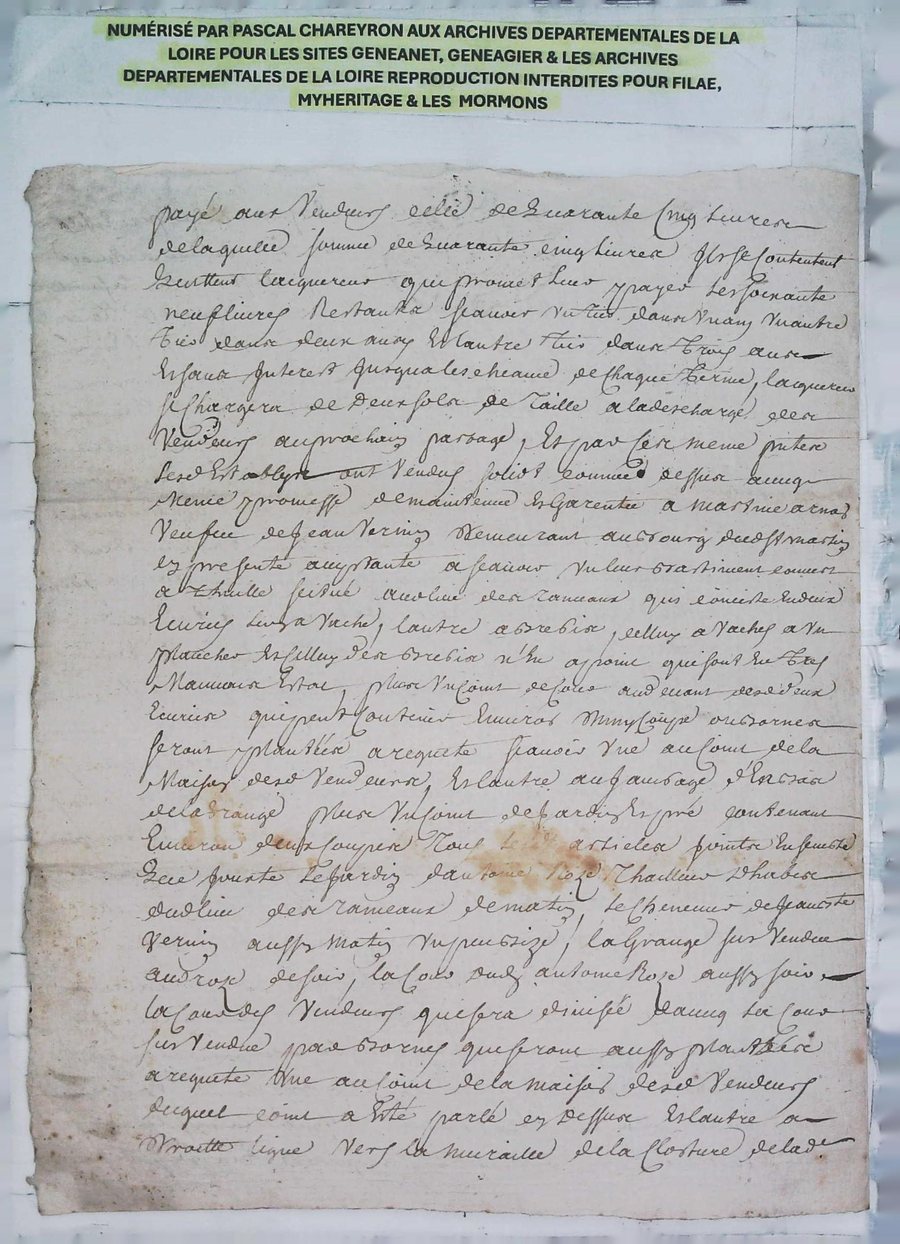 NUMÉRISÉ PAR PASCAL CHAREYRON AUX ARCHIVES DEPARTEMENTALES DE LA
LOIRE POUR LES SITES GENEANET, GENEAGIER & LES ARCHIVES
DEPARTEMENTALES DE LA LOIRE REPRODUCTION INTERDITES POUR FILAE,
MYHERITAGE & LES MORMONS
payé aux Vendeurs celle de quarante Cinq Livres
de laquelle somme de quarante cinq Livres ils se Contentent
quittent lacquereur qui promet leur payer les soixante
neuf livres Restantes scauoir un tier dans un an un autre
tier dans deux ans Et lautre tier dans Trois ans
Et sans Interest Jusqua les cheance de Chaque Terme, lacquereur
se Chargera de Deux sols de Taille a la descharge des
Vendeurs au prochain passage, Et par ces meme
ont Vendus solid. comme dessus aueq
meme promesse de maintenue Et Garentie a martine arnas
Veufue de Jean Vernin Demeurant au Bourg dud. st martin
en presente aceptante a scauoir un leur Bastiment couuert
a Thuille scitué au lieu des rameaux qui consiste En deux
Ecuries Lune a Vache, lautre a Brebis, celluy a Vaches a un
plancher Et celluy des Brebis n'En a point qui sont En Tres
Mauuais Estat, plus un Coint de Cour au deuant desd. deux
Ecuries qui peut Contenir Enuiron ou Bornes
seront plantées a requete scauoir une au Coint de la
Maison desd. Vendeurs, Et lautre au
de la Grange plus un Coint de Jardin Et pré contenant
Enuiron deux coupes Tous articles joints Ensemble
Jouxte Le Jardin dantoine Roze Thailleur Dhabis
dud. lieu des rameaux de matin, le Cheneuier de Jean
Vernin aussy matin un peu Bize, la Grange sus Vendue
aud. roze de soir, la Cour dud. antoine Roze aussy soir
la Cour des Vendeurs qui sera diuisée daueq la Cour
sus Vendue par Bornes qui seront aussy plantées
a requete une au Coint de la maison desd. Vendeurs
duquel coint a Esté parlé cy Dessus Et lautre a
Droitte ligne Vers la muraille de la Closture de lad.